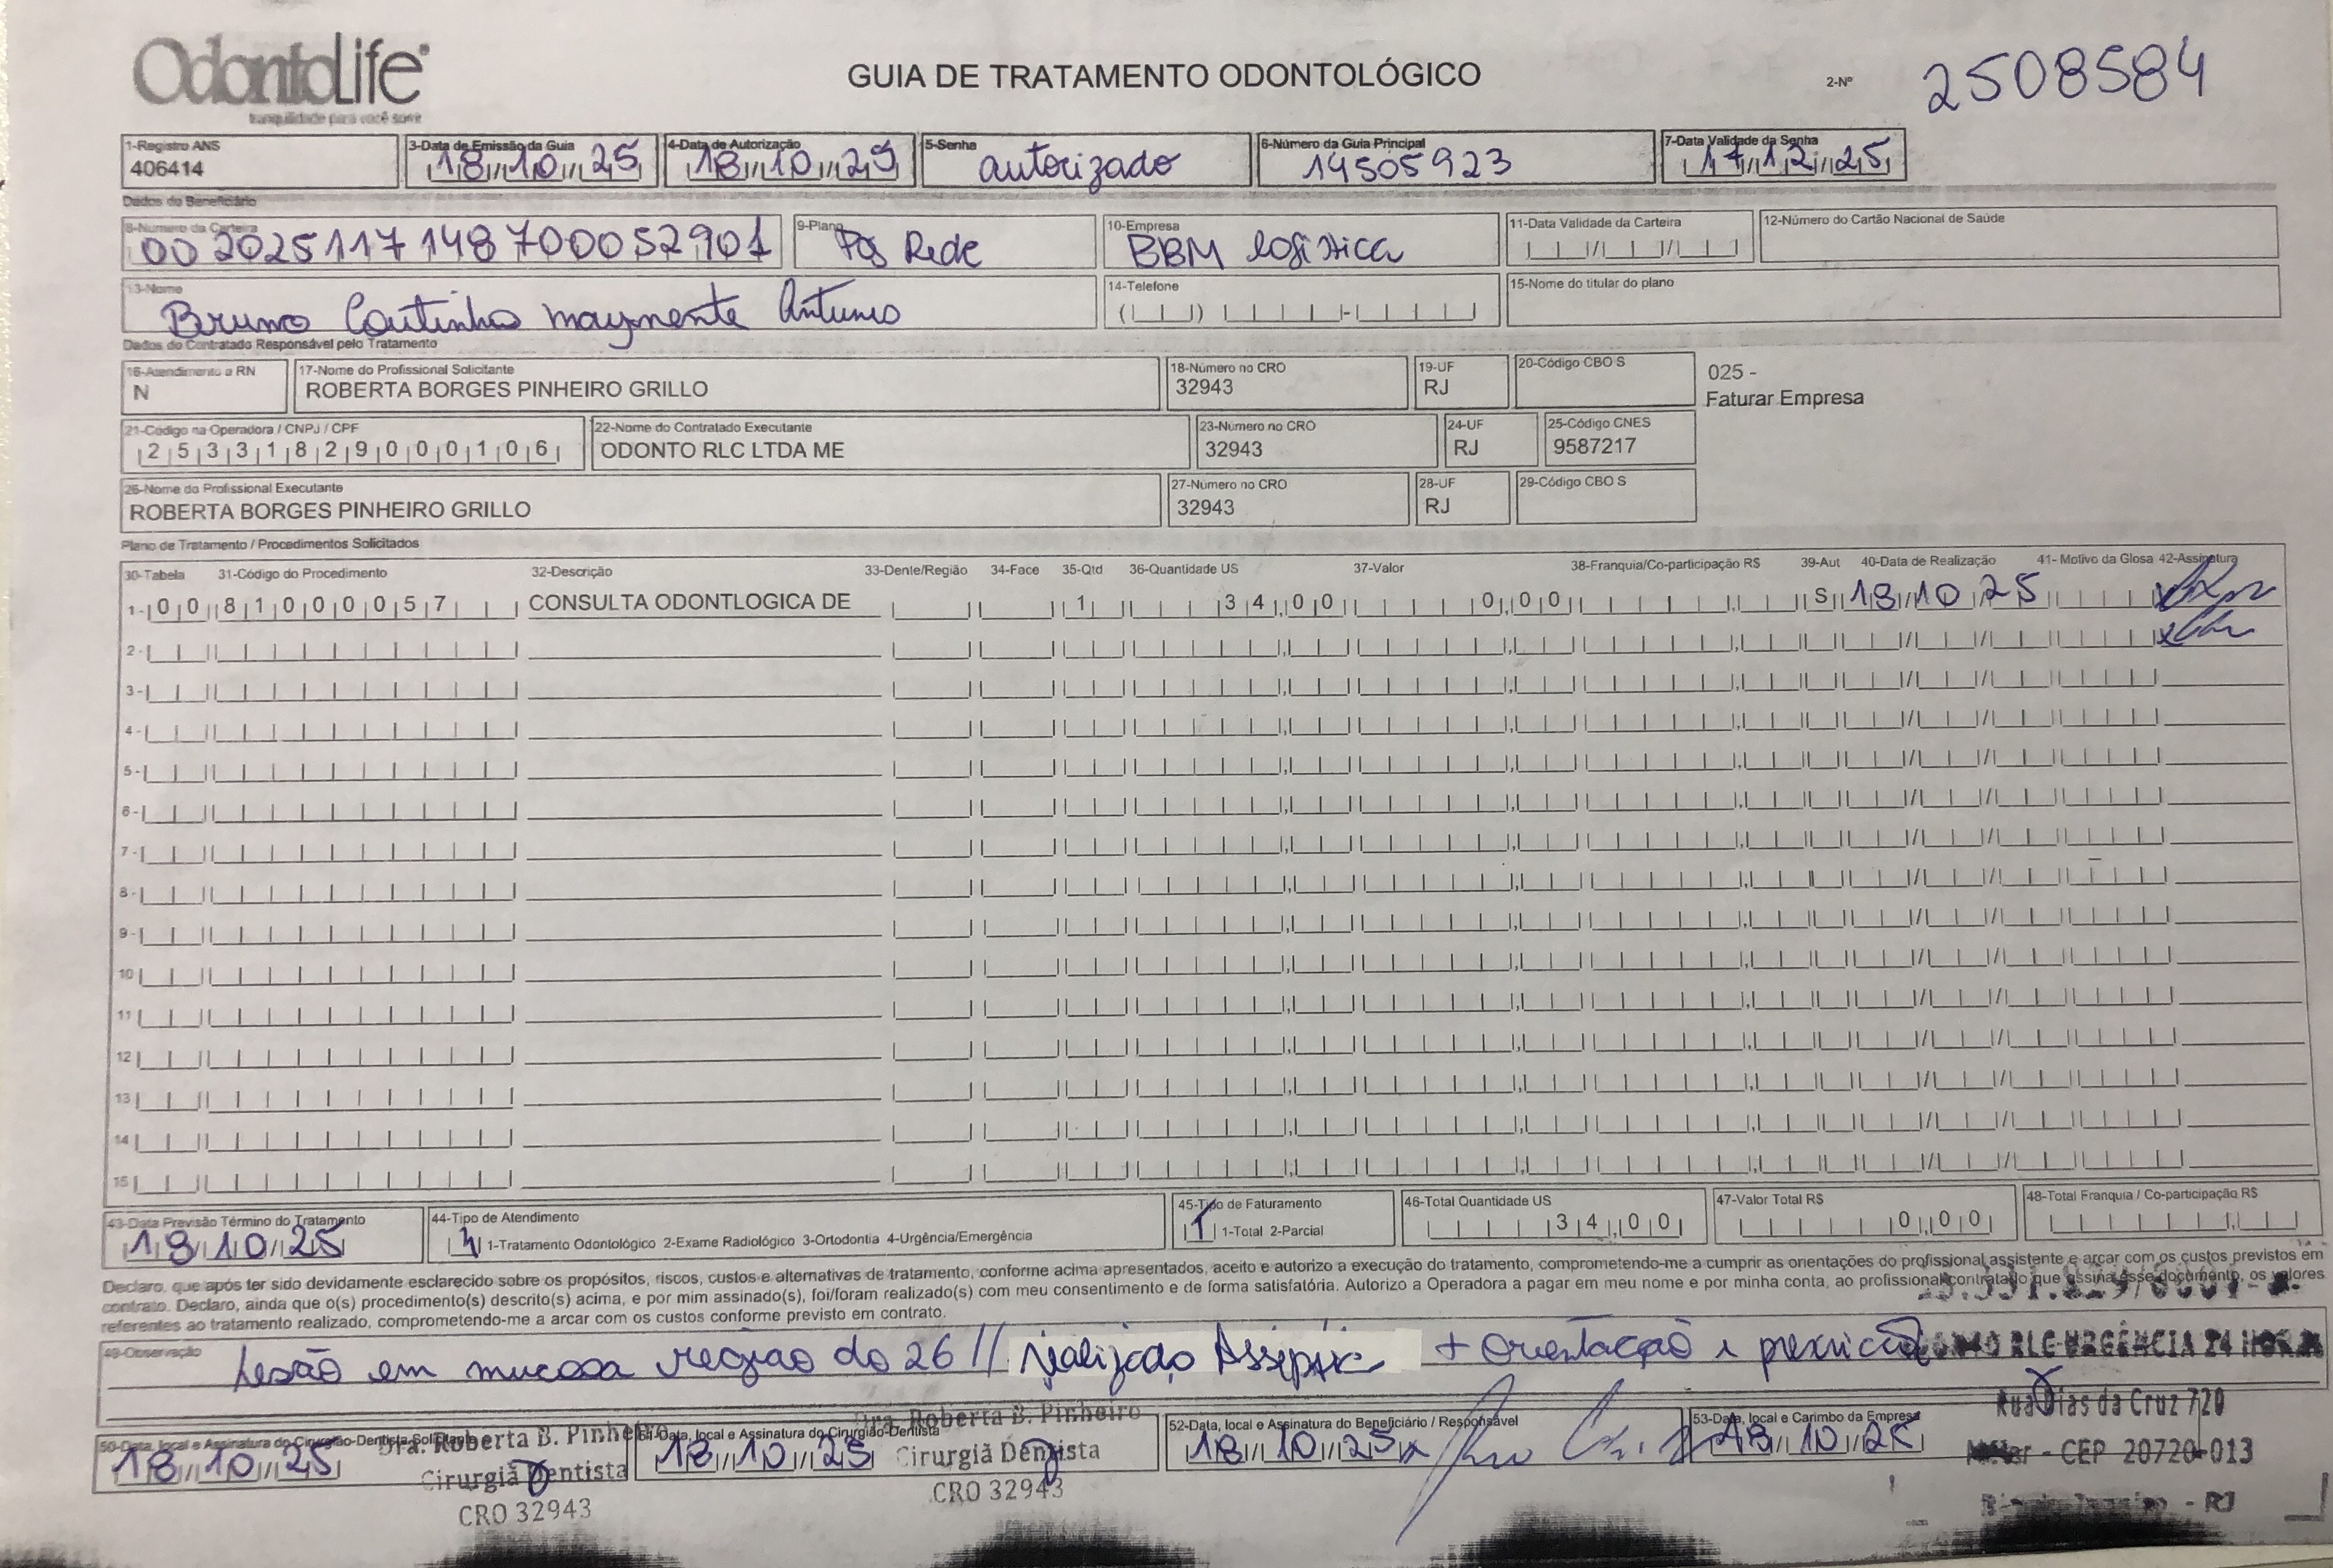 OdontoLife
tranquilidade para você sorrir
GUIA DE TRATAMENTO ODONTOLÓGICO
2-Nº 2508584
1-Registro ANS
406414
3-Data de Emissão da Guia
18/10/25
4-Data de Autorização
18/10/25
5-Senha
autorizado
6-Número da Guia Principal
14505923
7-Data Validade da Senha
17/12/25
Dados do Beneficiário
8-Número da Carteira
002025117148700052901
9-Plano
Pós Rede
10-Empresa
BBM logística
11-Data Validade da Carteira
12-Número do Cartão Nacional de Saúde
13-Nome
Bruno Coutinho maymente Antunes
14-Telefone
15-Nome do titular do plano
Dados do Contratado Responsável pelo Tratamento
16-Atendimento a RN
N
17-Nome do Profissional Solicitante
ROBERTA BORGES PINHEIRO GRILLO
18-Número no CRO
32943
19-UF
RJ
20-Código CBO S
025 -
Faturar Empresa
21-Código na Operadora / CNPJ / CPF
25331829000106
22-Nome do Contratado Executante
ODONTO RLC LTDA ME
23-Número no CRO
32943
24-UF
RJ
25-Código CNES
9587217
26-Nome do Profissional Executante
ROBERTA BORGES PINHEIRO GRILLO
27-Número no CRO
32943
28-UF
RJ
29-Código CBO S
Plano de Tratamento / Procedimentos Solicitados
30-Tabela 31-Código do Procedimento 32-Descrição 33-Dente/Região 34-Face 35-Qtd 36-Quantidade US 37-Valor 38-Franquia/Co-participação R$ 39-Aut 40-Data de Realização 41- Motivo da Glosa 42-Assinatura
1- 00 81000057 CONSULTA ODONTLOGICA DE 1 34,00 0,00 S 18/10/25
2-
3-
4-
5-
6-
7-
8-
9-
10
11
12
13
14
15
43-Data Previsão Término do Tratamento
18/10/25
44-Tipo de Atendimento
4 1-Tratamento Odontológico 2-Exame Radiológico 3-Ortodontia 4-Urgência/Emergência
45-Tipo de Faturamento
1 1-Total 2-Parcial
46-Total Quantidade US
34,00
47-Valor Total R$
0,00
48-Total Franquia / Co-participação R$
Declaro, que após ter sido devidamente esclarecido sobre os propósitos, riscos, custos e alternativas de tratamento, conforme acima apresentados, aceito e autorizo a execução do tratamento, comprometendo-me a cumprir as orientações do profissional assistente e arcar com os custos previstos em
contrato. Declaro, ainda que o(s) procedimento(s) descrito(s) acima, e por mim assinado(s), foi/foram realizado(s) com meu consentimento e de forma satisfatória. Autorizo a Operadora a pagar em meu nome e por minha conta, ao profissional contratado que assina esse documento, os valores
referentes ao tratamento realizado, comprometendo-me a arcar com os custos conforme previsto em contrato.
49-Observação
Lesão em mucosa região do 26 // realizado + orientação
RLC URGÊNCIA 24 HORAS
Rua Dias da Cruz 720
Méier - CEP 20720-013
- RJ
50-Data, local e Assinatura do Cirurgião-Dentista Solicitante
18/10/25
Dra. Roberta B. Pinheiro
Cirurgiã Dentista
CRO 32943
51-Data, local e Assinatura do Cirurgião-Dentista
18/10/25
Dra. Roberta B. Pinheiro
Cirurgiã Dentista
CRO 32943
52-Data, local e Assinatura do Beneficiário / Responsável
18/10/25
53-Data, local e Carimbo da Empresa
18/10/25